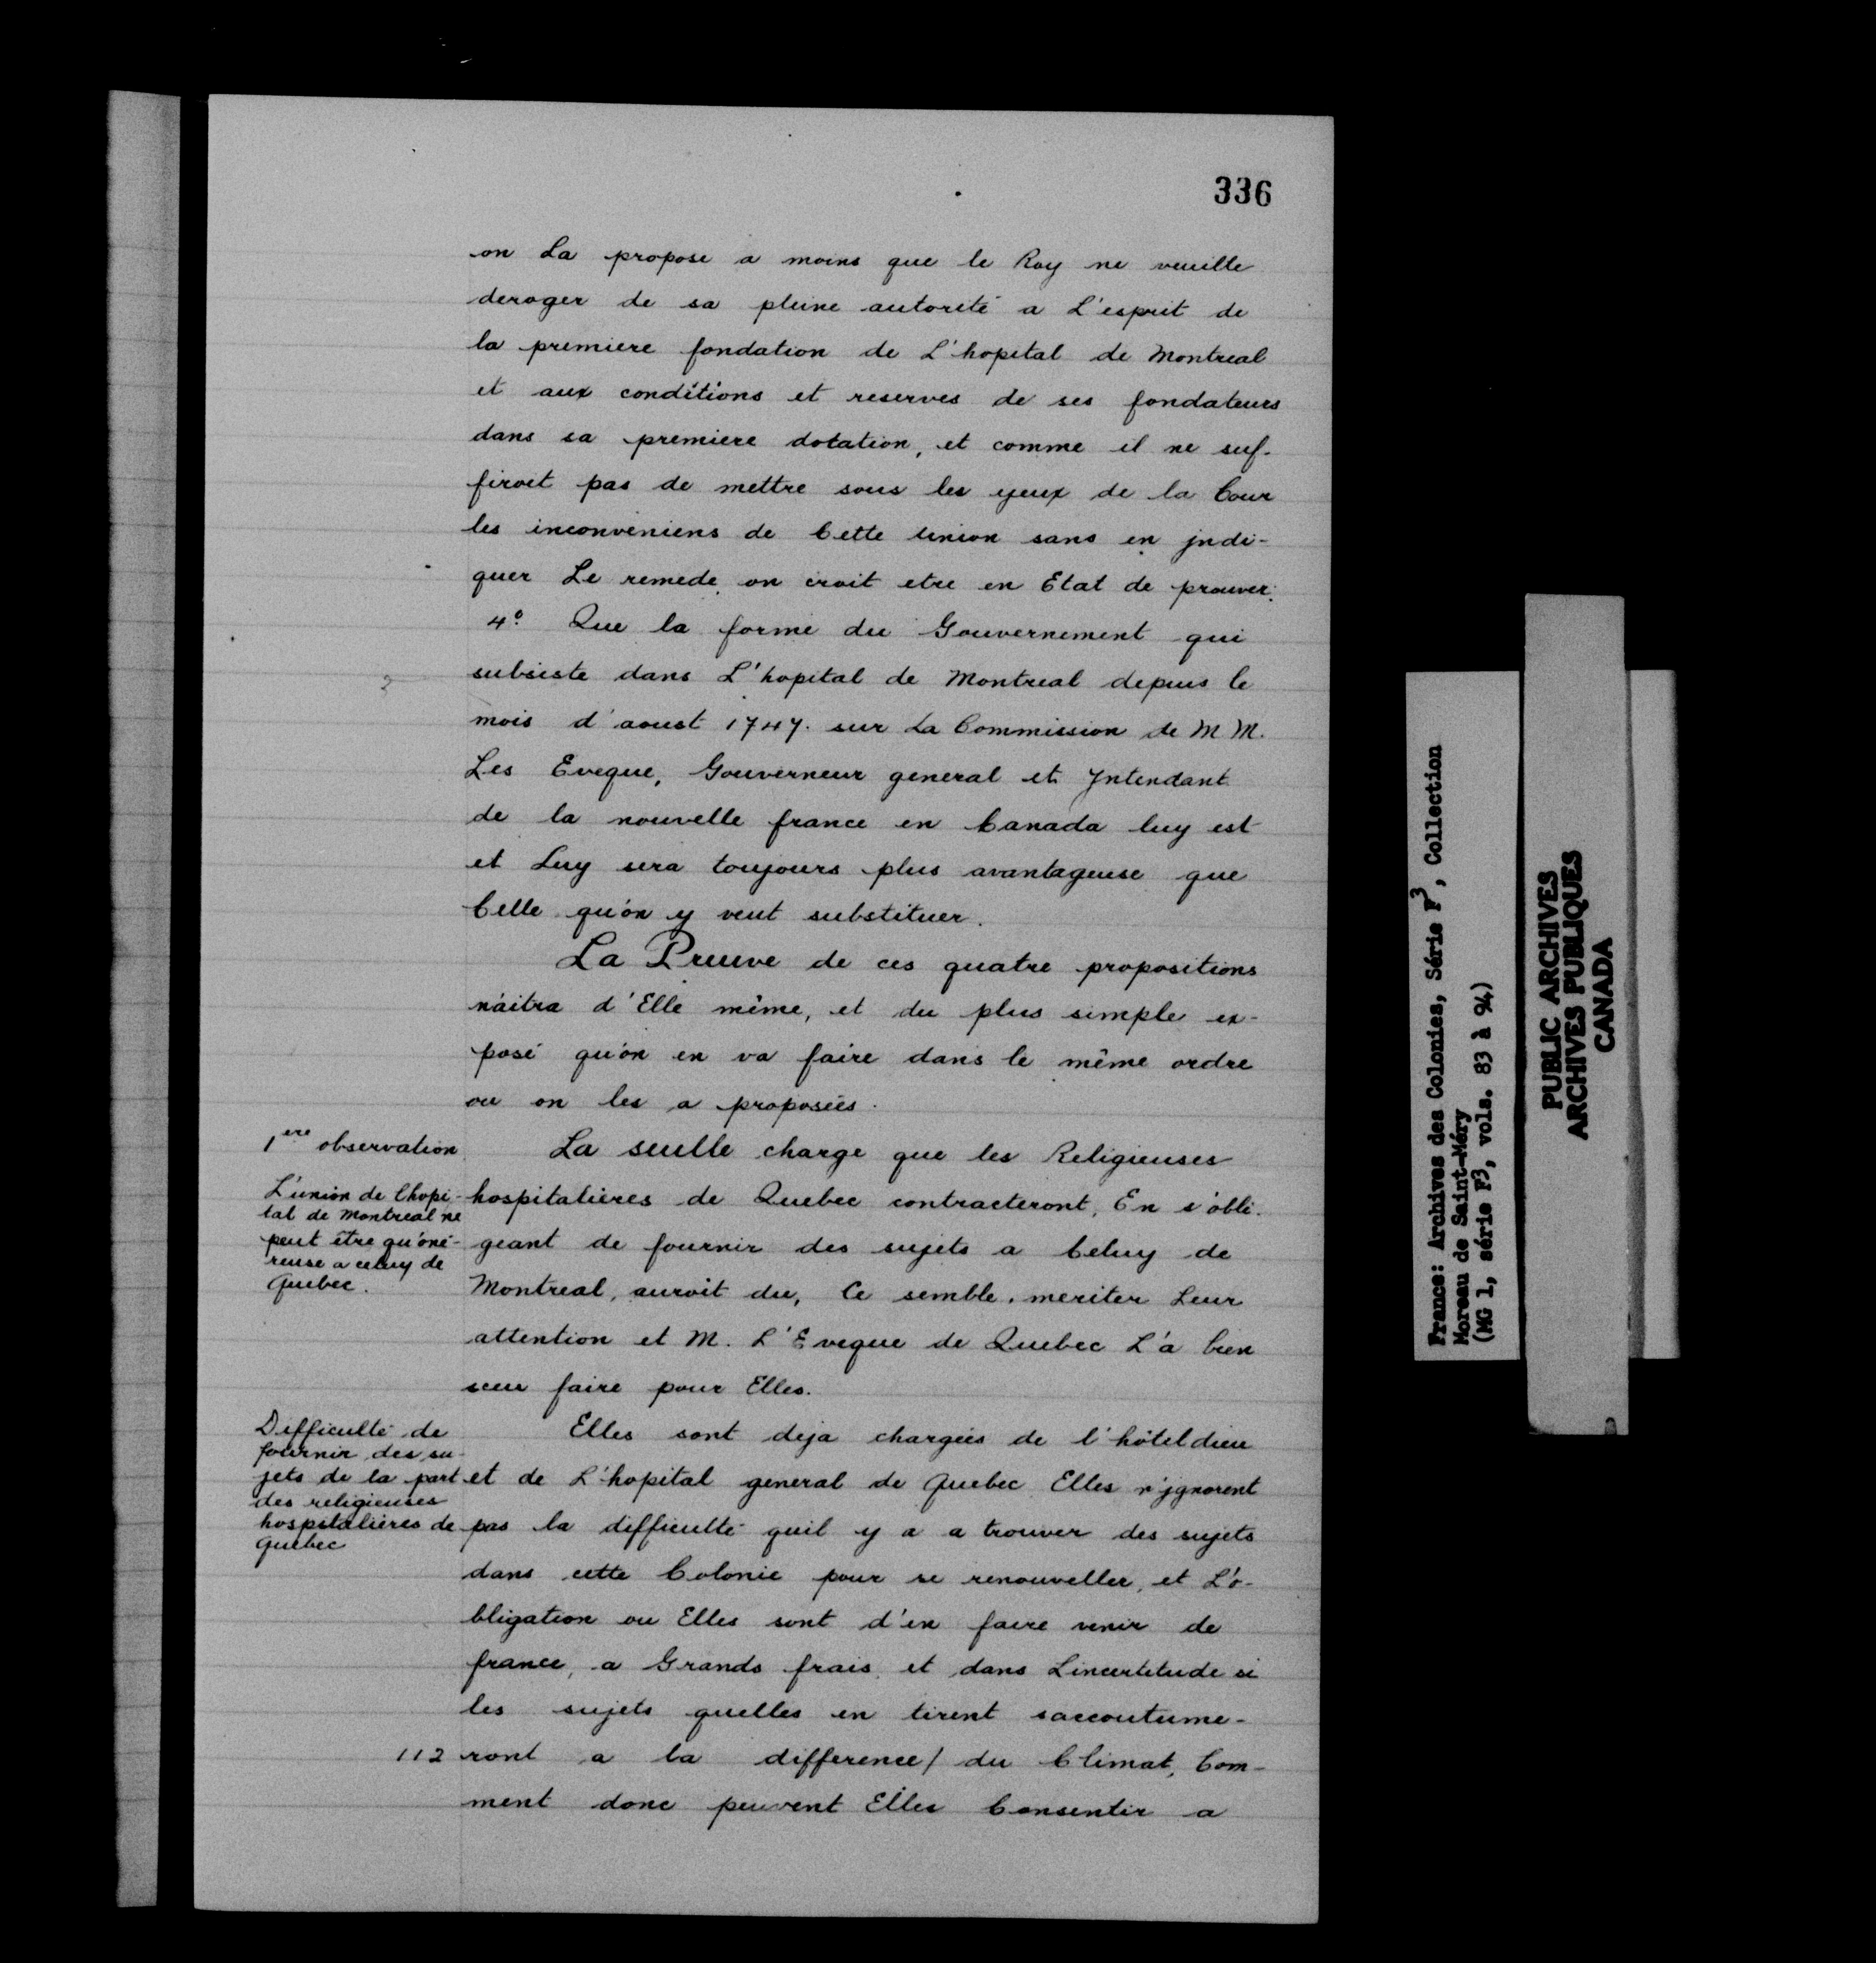 336
on La propose a moins que le Roy ne veuille
deroger de sa pleine autorité a L'esprit de
la premiere fondation de L'hopital de Montreal
et aux conditions et reserves de ses fondateurs
dans sa premiere dotation, et comme il ne suf-
firoit pas de mettre sous les yeux de la Cour
les inconveniens de Cette union sans en jndi-
quer Le remede, on croit etre en Etat de prouver.
4º Que la forme du Gouvernement qui
subsiste dans L'hopital de Montreal depuis le
mois d'aoust 1747. sur La Commission de M M.
Les Eveque, Gouverneur general et Jntendant
de la nouvelle france en Canada luy est
et Luy sera toujours plus avantageuse que
Celle qu'on y veut substituer.
La Preuve de ces quatre propositions
náitra d'Elle même, et du plus simple ex-
posé qu'on en va faire dans le même ordre
ou on les a proposées.
1ere observation
L'union de lhopi-
tal de Montreal ne
peut être qu'oné-
reuse a celuy de
Quebec.
La seulle charge que les Religieuses
hospitalieres de Quebec contracteront, En s'obli-
geant de fournir des sujets a Celuy de
Montreal, auroit du, Ce semble, meriter Leur
attention et M. L'Eveque de Quebec L'a bien
sceu faire pour Elles.
Difficulté de
fournir des su-
jets de la part
des religieuses
hospitalières de
Quebec
Elles sont deja chargées de l'hôteldieu
et de L'hopital general de Quebec Elles n'jgnorent
pas la difficulté quil y a a trouver des sujets
dans cette Colonie pour se renouveller, et L'o-
bligation ou Elles sont d'en faire venir de
france, a Grands frais, et dans Lincertitude si
les sujets quelles en tirent saccoutume-
112 ront a la difference/ du Climat, Com-
ment donc peuvent Elles Consentir a
France: Archives des Colonies, Série F3, Collection
Moreau de Saint-Méry
(MG 1, série F3, vols. 83 à 94)
PUBLIC ARCHIVES
ARCHIVES PUBLIQUES
CANADA